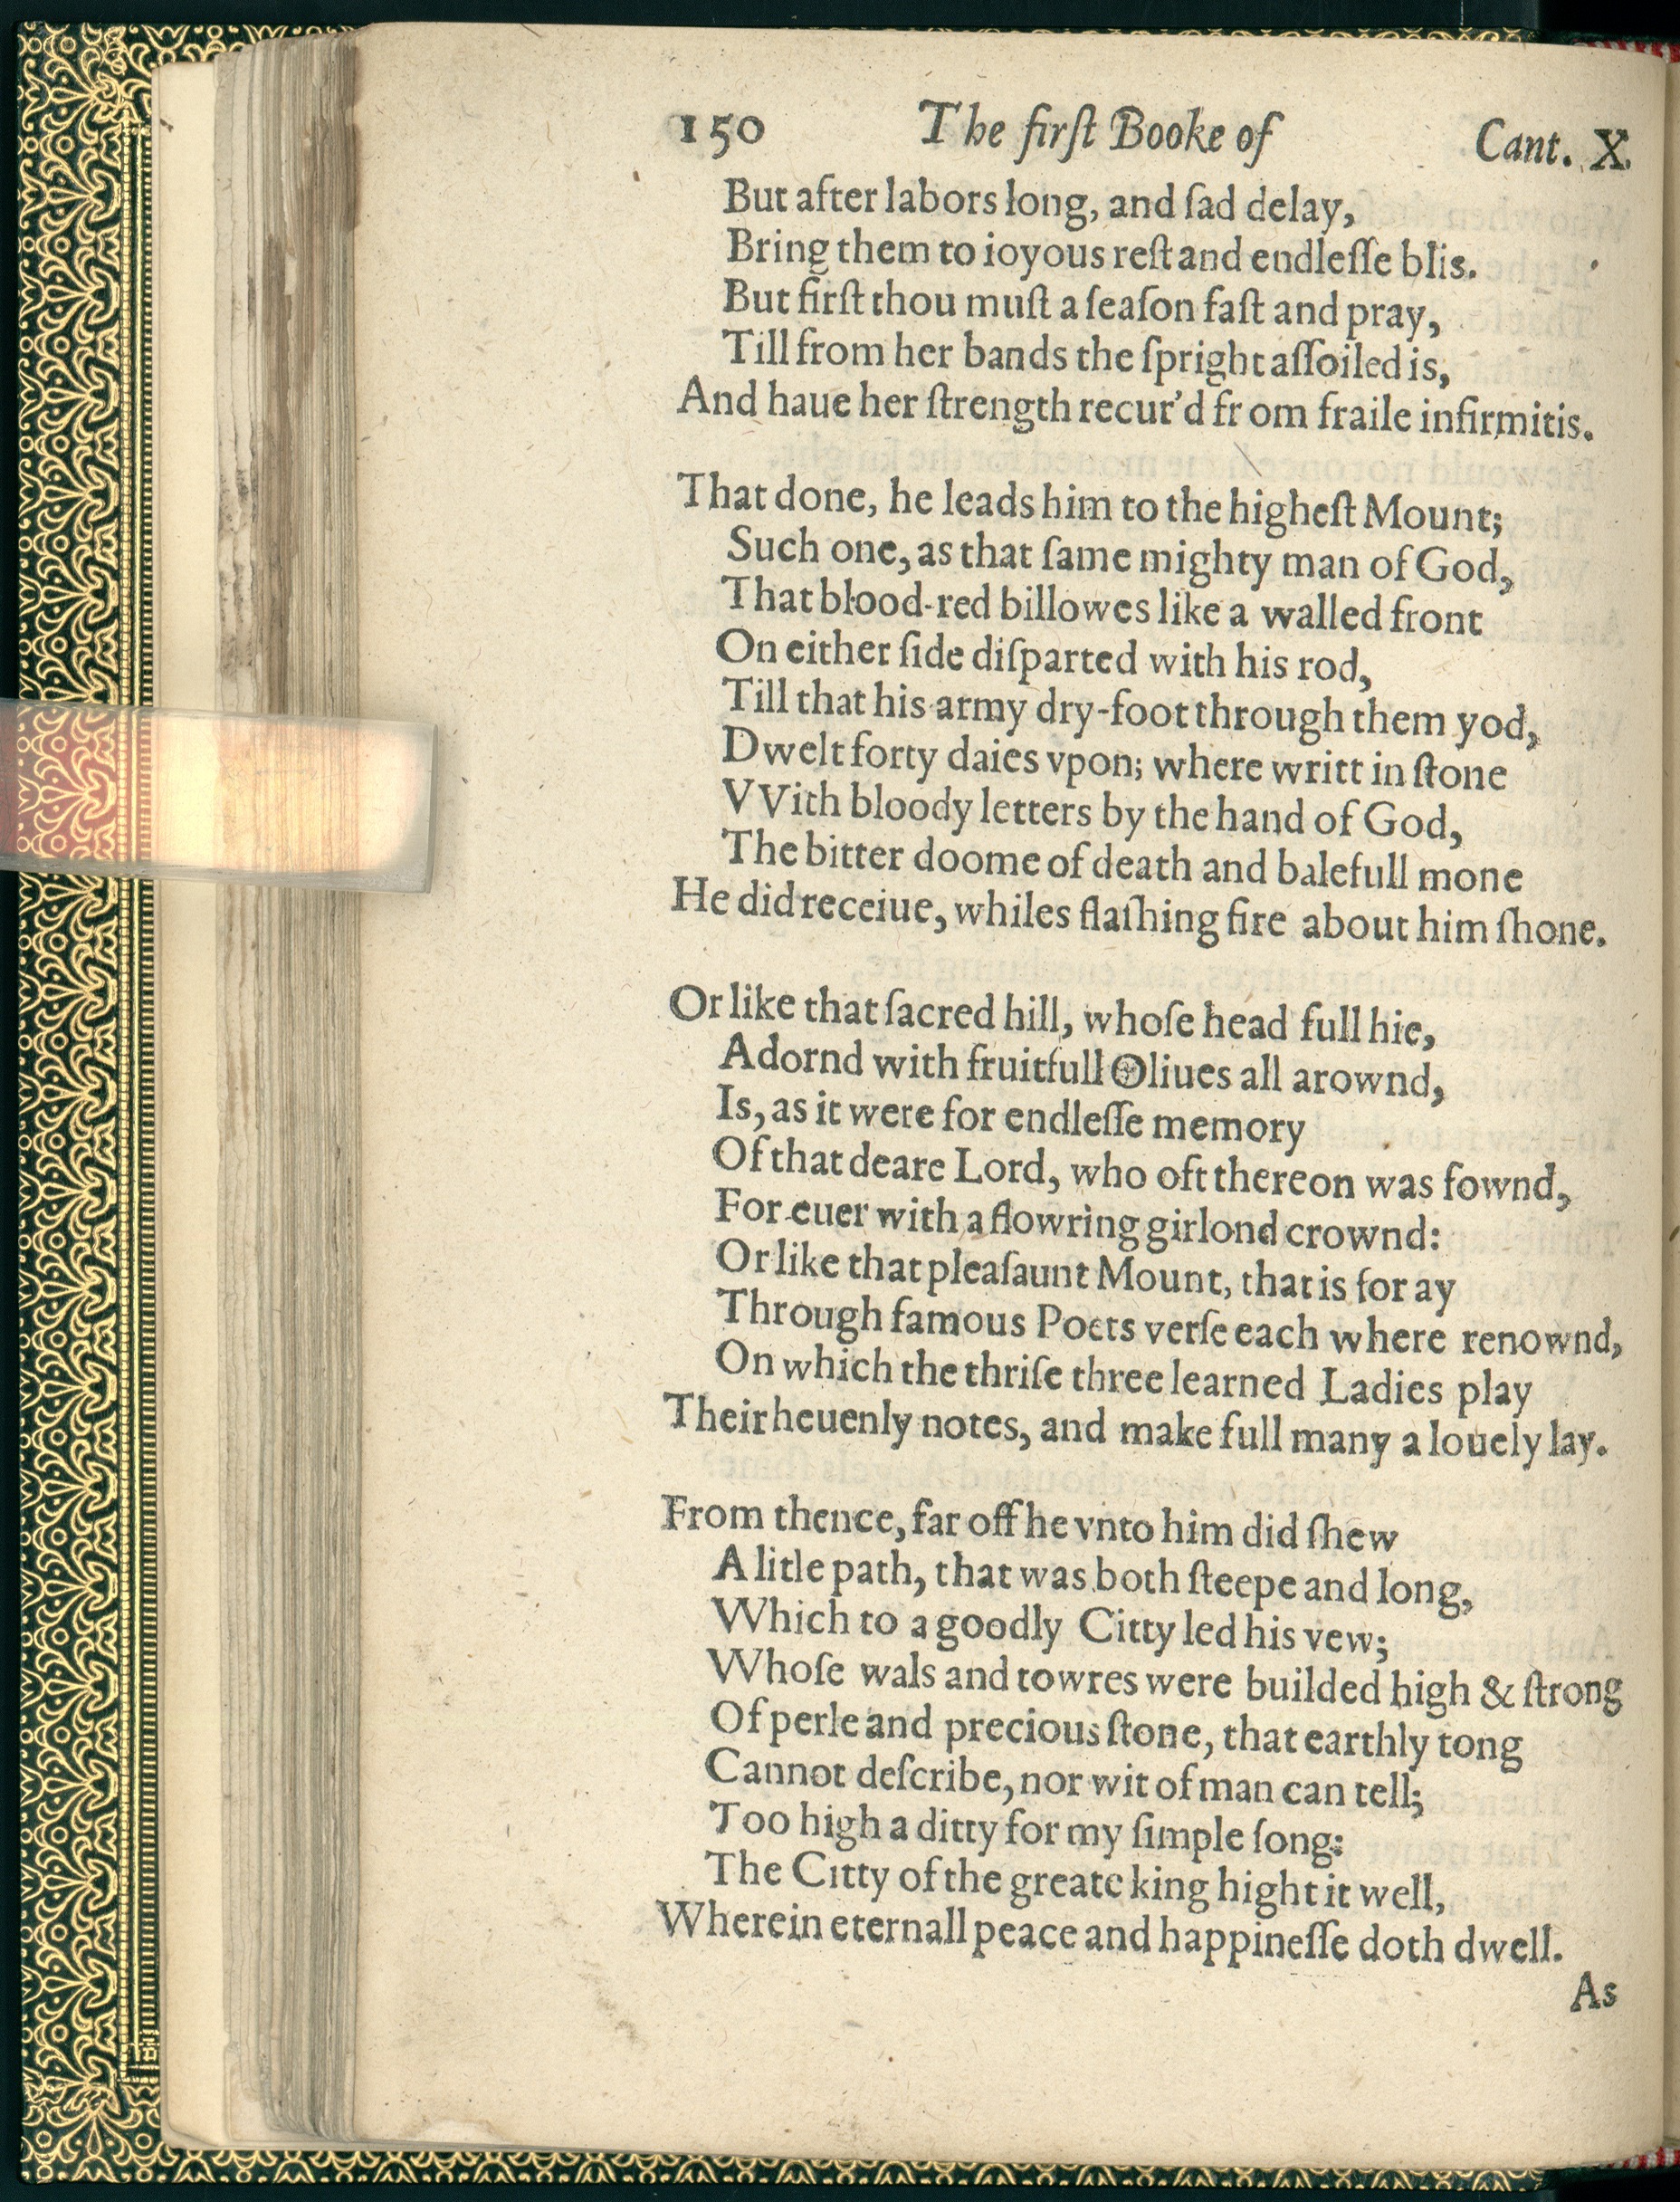 150 The firſt Booke of Cant. X.
But after labors long, and ſad delay,
Bring them to ioyous reſt and endleſſe blis.
But firſt thou muſt a ſeaſon faſt and pray,
Till from her bands the ſpright aſſoiled is,
And haue her ſtrength recur'd fr om fraile infirmitis.
That done, he leads him to the higheſt Mount;
Such one, as that ſame mighty man of God,
That blood-red billowes like a walled front
On either ſide diſparted with his rod,
Till that his army dry-foot through them yod,
Dwelt forty daies vpon; where writt in ſtone
VVith bloody letters by the hand of God,
The bitter doome of death and balefull mone
He did receiue, whiles flaſhing fire about him ſhone.
Or like that ſacred hill, whoſe head full hie,
Adornd with fruitfull Oliues all arownd,
Is, as it were for endleſſe memory
Of that deare Lord, who oft thereon was fownd,
For euer with a flowring girlond crownd:
Or like that pleaſaunt Mount, that is for ay
Through famous Poets verſe each where renownd,
On which the thriſe three learned Ladies play
Their heuenly notes, and make full many a louely lay.
From thence, far off he vnto him did ſhew
A litle path, that was both ſteepe and long,
Which to a goodly Citty led his vew;
Whoſe wals and towres were builded high & ſtrong
Of perle and precious ſtone, that earthly tong
Cannot deſcribe, nor wit of man can tell;
Too high a ditty for my ſimple ſong:
The Citty of the greate king hight it well,
Wherein eternall peace and happineſſe doth dwell.
As